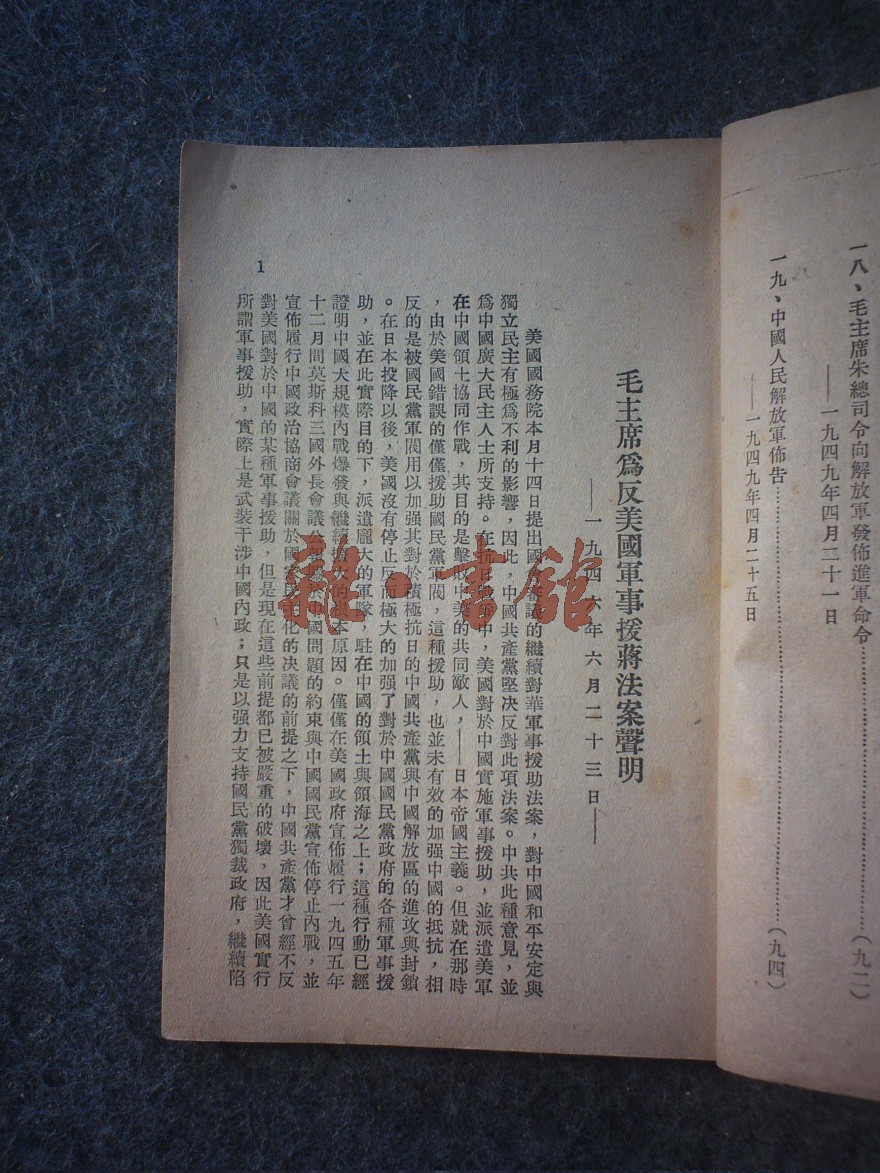 一八、毛主席朱總司令向解放軍發佈進軍命令……(九二)
——一九四九年四月二十一日
一九、中國人民解放軍佈告……(九四)
——一九四九年四月二十五日
毛主席爲反美國軍事援蔣法案聲明
——一九四六年六月二十三日——
美國國務院本月十四日提出國會審議的繼續對華軍事援助法案,對中國和平安定與
獨立民主有極爲不利的影響,因此,中國共產黨堅決反對此項法案。中共此種意見,並
爲中國廣大民主人士所支持。在抗日戰爭中,美國對於中國實施軍事援助,並派遣美軍
在中國領土協同作戰,其目的是擊敗中美的共同敵人,——日本帝國主義。但就在那時
,由於美國錯誤的僅僅援助國民黨軍閥,這種援助,也並未有效的加强中國的抵抗,相
反的是被國民黨軍閥用以加强其對於積極抗日的中國共產黨與中國解放區的進攻與封鎖
。在日本投降以後,美國沒有停止反而極大的加强了對於中國國民黨政府的各種軍事援
助,並在此實際目的下,派遣龐大的軍隊,駐在中國的領土與領海之上;這種行動已經
證明中國大規模內戰爆發與繼續擴大的根本原因。僅僅在美國政府宣佈履行一九四五年
十二月間莫斯科三國外長會議公報關於中國問題的約束與中國國民黨宣佈停止內戰,並
宣佈履行中國政治協商會議關於國家民主化的決議的前提之下,中國共產黨才曾經不反
對美國對於中國的某種軍事援助,但是現在這些前提都已被嚴重的破壞,因此美國實行
所謂軍事援助,實際上是武裝干涉中國內政;只是以强力支持國民黨獨裁政府,繼續陷
1
雜·書館